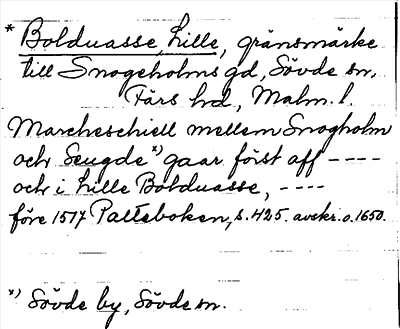 * Bolduasse, Lille, gränsmärke
till Snogeholms gd, Sövde sn,
Färs hd, Malm. l.
Marcheschiell mellem Snogholm
och Seugde *) gaar först aff ----
och i Lille Bolduasse, ----
före 1517 Palteboken, s. 425. avskr. o. 1650.
*) Sövde by, Sövde sn.